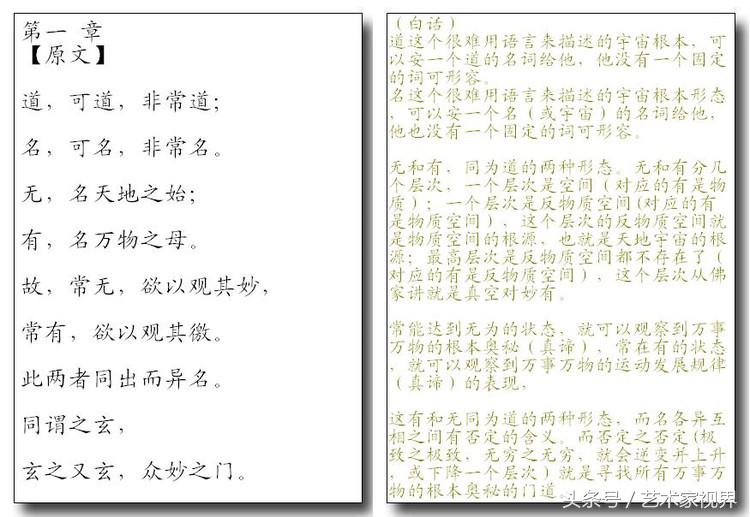 第一 章
【原文】
道，可道，非常道；
名，可名，非常名。
无，名天地之始；
有，名万物之母。
故，常无，欲以观其妙，
常有，欲以观其徼。
此两者同出而异名。
同谓之玄，
玄之又玄，众妙之门。
（白话）
道这个很难用语言来描述的宇宙根本，可
以安一个道的名词给他，他没有一个固定
的词可形容。
名这个很难用语言来描述的宇宙根本形态
，可以安一个名（或宇宙）的名词给他，
他也没有一个固定的词可形容。
无和有，同为道的两种形态。无和有分几
个层次，一个层次是空间（对应的有是物
质）；一个层次是反物质空间(对应的有
是物质空间），这个层次的反物质空间就
是物质空间的根源，也就是天地宇宙的根
源；最高层次是反物质空间都不存在了（
对应的有是反物质空间），这个层次从佛
家讲就是真空对妙有。
常能达到无为的状态，就可以观察到万事
万物的根本奥秘（真谛），常在有的状态
，就可以观察到万事万物的运动发展规律
（真谛）的表现，
这有和无同为道的两种形态，而名各异互
相之间有否定的含义。而否定之否定(极
致之极致，无穷之无穷，就会逆变并上升
，或下降一个层次）就是寻找所有万事万
物的根本奥秘的门道。
头条号／艺术家视界